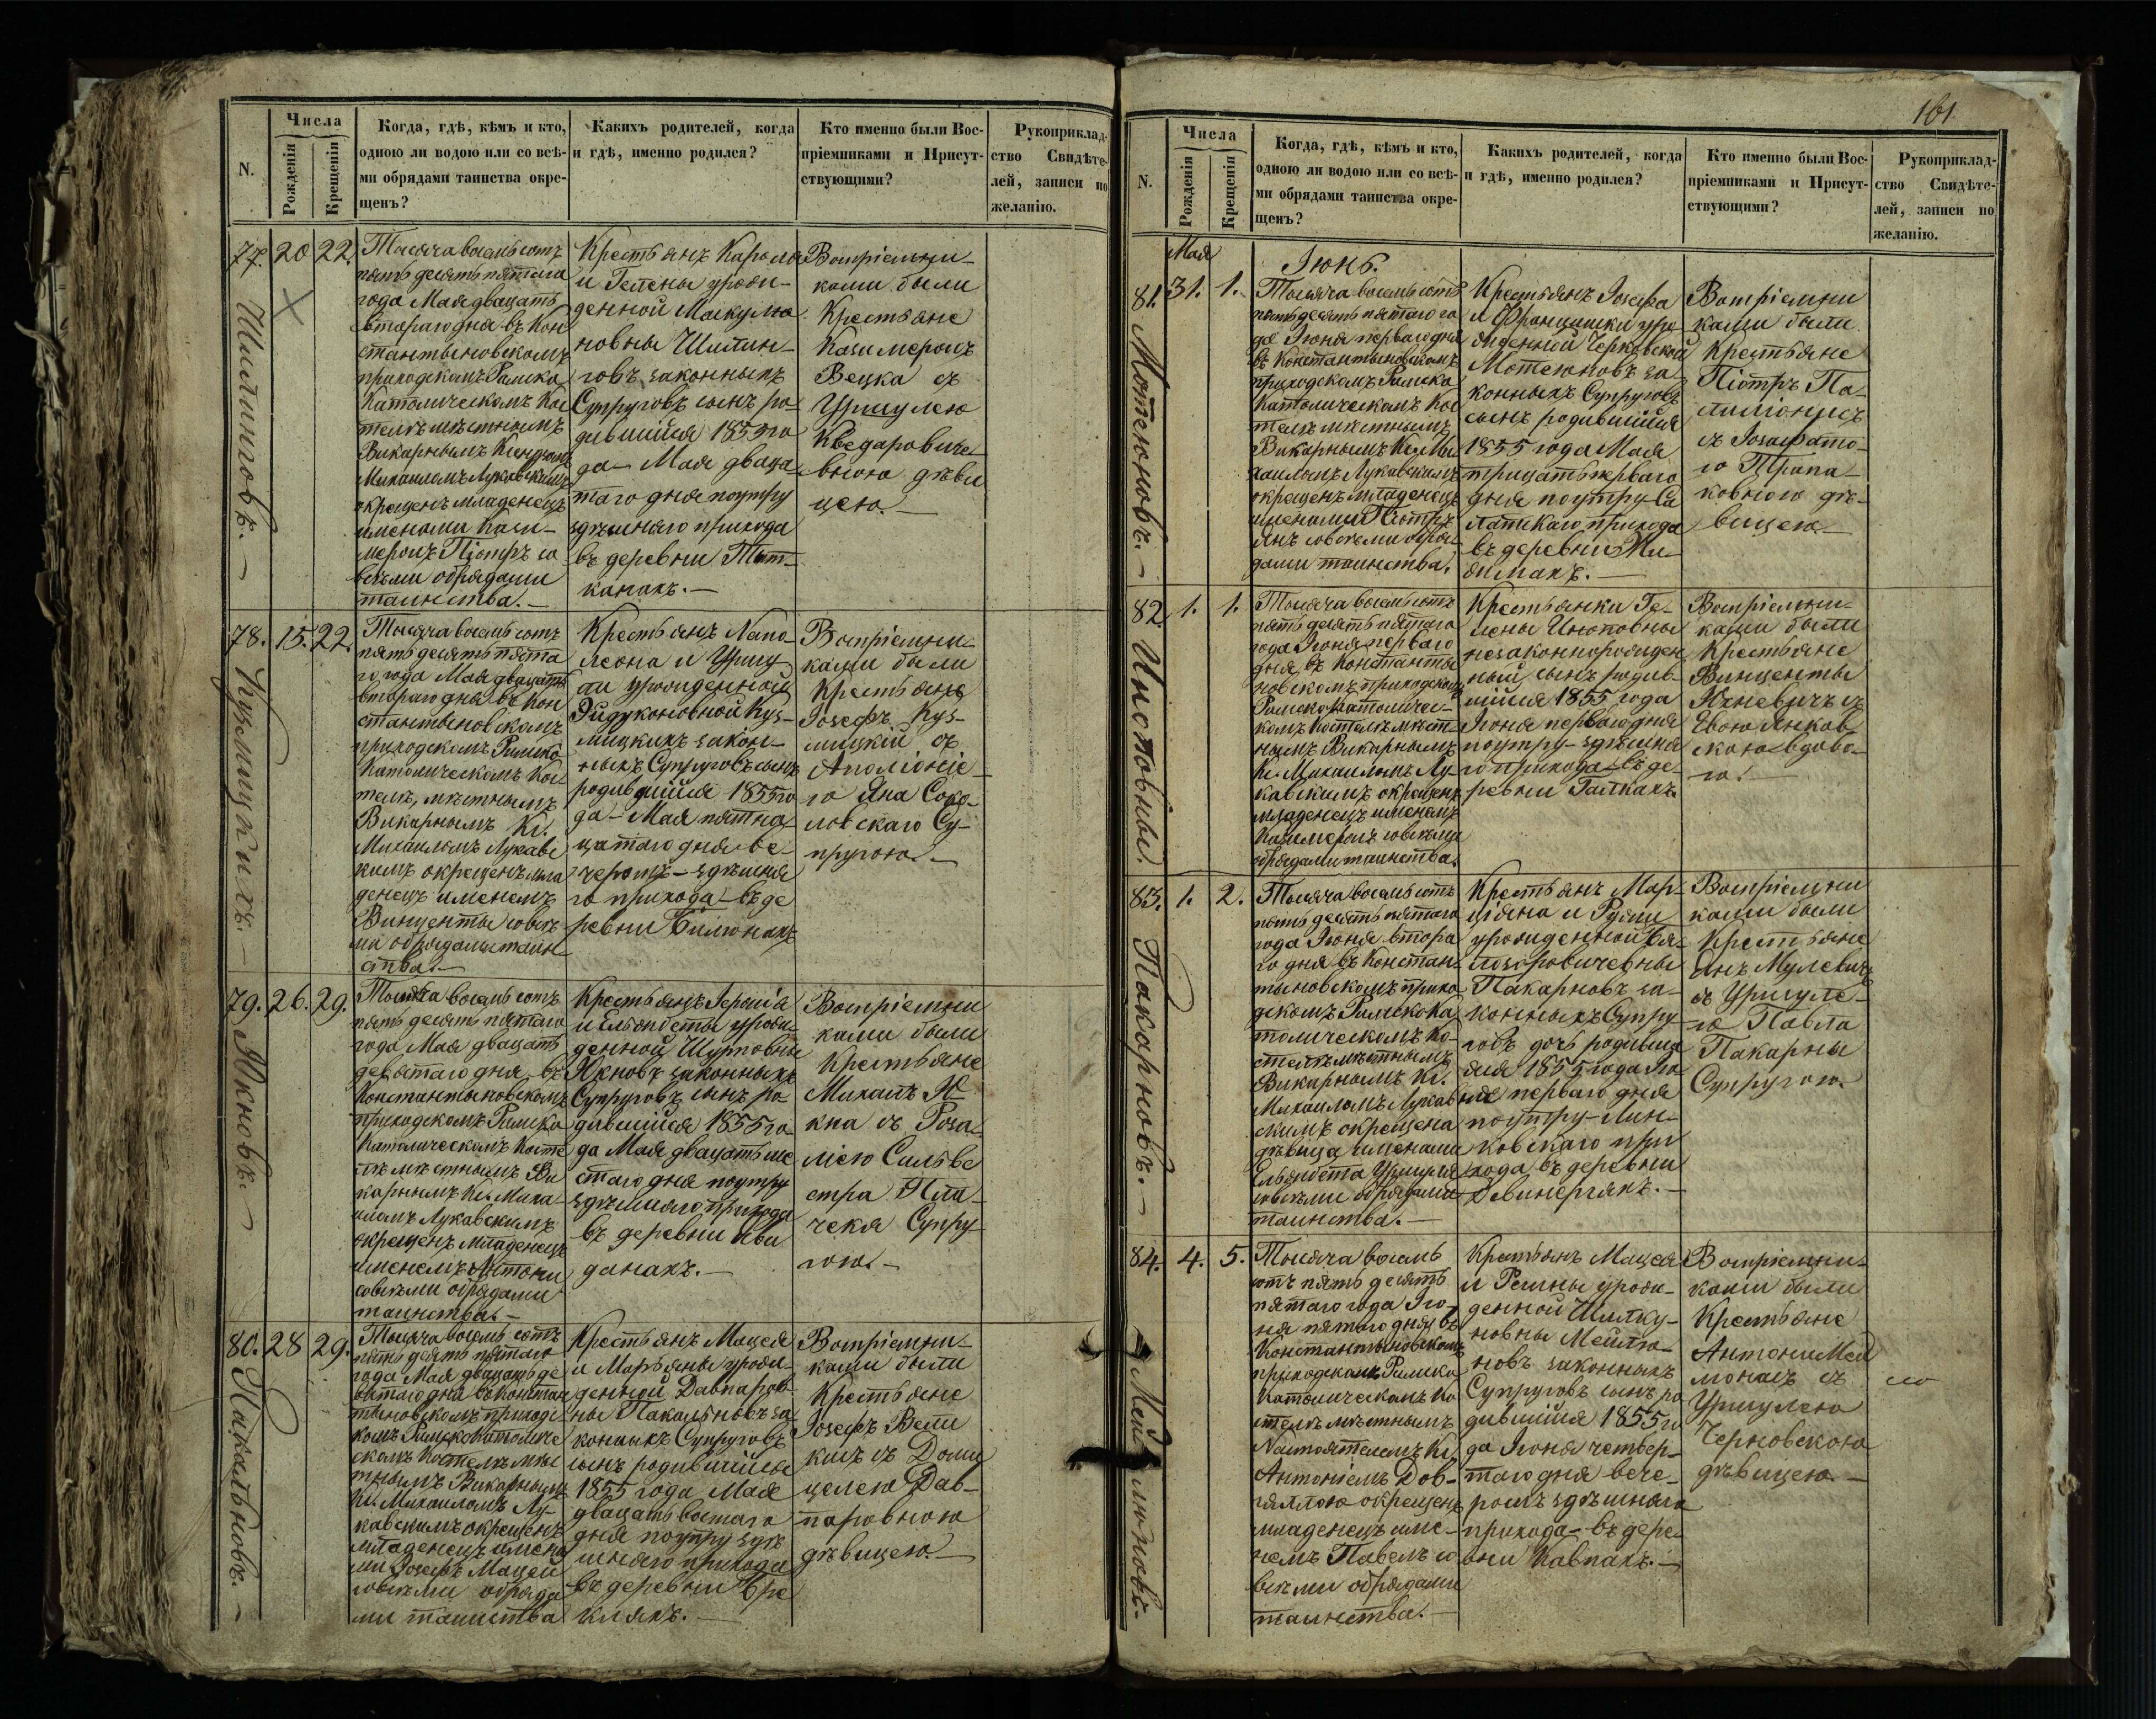 Числа
N.
Рожденія
Крещенія
Когда, гдѣ, кѣмъ и кто,
одною ли водою или со всѣ-
ми обрядами таинства окре-
щенъ?
Какихъ родителей, когда
и гдѣ, именно родился?
Кто именно были Вос-
пріемниками и Присут-
ствующими?
Рукоприклад-
ство Свидѣте-
лей, записи по
желанію.
77. 20 22.
Шилинговъ. —
Тысяча восемь сотъ
пять десять пятаго
года Мая двацать
втораго дня въ Кон
стантыновскомъ
приходскомъ Римско
Католическомъ Кос
телѣ мѣстнымъ
Викарнымъ Ксендзомъ
Михаиломъ Лукавскимъ
окрещенъ младенецъ
именами Кази-
меромъ Піотръ со
всѣми обрядами
таинства. —
Крестьянъ Кароля
и Гелены урож-
денной Маскулю
новны Шилин-
говъ законныхъ
Супруговъ сынъ ро-
дившийся 1855 го
да — Мая двадца
таго дня поутру
здѣшняго прихода
въ деревни Тыт-
канахъ. —
Воспріемни-
ками были
Крестьяне
Казимеромъ
Вецка съ
Уршулею
Кведарови
вною дѣви
цею. —
78. 15. 22.
Кузмицкихъ. —
Тысяча восемь сотъ
пять десять пята
го года Мая двацать
втораго дня въ Кон
стантыновскомъ
приходскомъ Римско
Католическомъ Кос
телѣ, мѣстнымъ
Викарнымъ Кс.
Михаиломъ Лукавс
кимъ окрещенъ мла
денецъ именемъ
Винценты со всѣ
ми обрядами таин
ства. —
Крестьянъ Напо-
леона и Уршу
ли урожденной
Куз-
мицкихъ закон-
ныхъ Супруговъ сынъ
родившійся 1855 го
да — Мая пятна
цатаго дня ве-
черомъ — здѣшня
го прихода — въ де
ревни Билюнахъ
Воспріемни-
ками были
Крестьяне
Іозефъ Куз-
мицкій съ
Аполіоніе-
ю Яна Соко-
ловскаго Су-
пругою. —
79. 26. 29.
Якновъ. —
Тысяча восемь сотъ
пять десять пятаго
года Мая двацать
девятаго дня въ
Константыновскомъ
приходскомъ Римско
Католическомъ Косте
лѣ мѣстнымъ Ви
карнымъ Кс. Миха-
иломъ Лукавскимъ
окрещенъ младенецъ
именемъ Антони
со всѣми обрядами
таинства. —
Крестьянъ
и Ельзбеты урож-
денной Шурповны
Якновъ законныхъ
Супруговъ сынъ ро
дившійся 1855 го
да Мая двацать ше
стаго дня поутру
здѣшняго прихода
въ деревни
данахъ. —
Воспріемни
ками были
Крестьяне
Михаилъ Я
кна съ Роза
ліею Сильве
стра
чекя Супру-
гою. —
80. 28 29.
Пакальновъ. —
Тысяча восемь сотъ
пять десять пятаго
года Мая двацать де
вятаго дня въ Констан
тыновскомъ приходс
комъ Римско Католиче
скомъ Костелѣ мѣс
тнымъ Викарнымъ
Кс. Михаиломъ Лу-
кавскимъ окрещенъ
младенецъ имена
ми Іозефъ Мацей
со всѣми обряда
ми таинства
Крестьянъ Мацея
и Марьяны урож-
денной Давпаров-
ны Пакальновъ за
конныхъ Супруговъ
сынъ родившійся
1855 года Мая
двацать восмаго
дня поутру здѣ
шняго прихода
въ деревни Бре
кляхъ. —
Воспріемни-
ками были
Крестьяне
Іозефъ Вели
кисъ съ Доми
целею Дав-
паровною
дѣвицею. —
161.
Числа
N.
Рожденія
Крещенія
Когда, гдѣ, кѣмъ и кто,
одною ли водою или со всѣ-
ми обрядами таинства окре-
щенъ?
Какихъ родителей, когда
и гдѣ, именно родился?
Кто именно были Вос-
пріемниками и Присут-
ствующими?
Рукоприклад-
ство Свидѣте-
лей, записи по
желанію.
Мая
Іюнь.
81. 31. 1.
Мотеюновъ. —
Тысяча восемь сотъ
пять десять пятаго го
да Іюня перваго дня
въ Константыновскомъ
приходскомъ Римско
Католическомъ Кос
телѣ мѣстнымъ
Викарнымъ Кс. Ми
хаиломъ Лукавскимъ
окрещенъ младенецъ
именами Піотръ
Янъ со всѣми обря
дами таинства.
Крестьянъ Іозефа
и Францишки уро-
жденной Черковской
Мотеюновъ за
конныхъ Супруговъ
сынъ родившійся
1855 года Мая
трицать перваго
дня поутру Са
латскаго прихода
въ деревни
Воспріемни
ками были
Крестьяне
Піотръ Па-
съ Іозафато-
ю
ковною дѣ-
вицею —
82. 1. 1.
Инютовны.
Тысяча восемь сотъ
пять десять пятаго
года Іюня перваго
дня въ Константы
новскомъ приходскомъ
Римско Католичес-
комъ Костелѣ мѣст-
нымъ Викарнымъ
Кс. Михаиломъ Лу-
кавскимъ окрещенъ
младенецъ именемъ
Казимеромъ со всѣми
обрядами таинства.
Крестьянки Ге-
лены Инютовны
незаконнорожден
ный сынъ родив-
шійся 1855 года
Іюня перваго дня
поутру — здѣшня
го прихода — въ де-
ревни Гайлкахъ.
Воспріемни-
ками были
Крестьяне
Винценты
Юхневичъ съ
Евою Янков
скою вдово-
ю. —
83. 1. 2.
Пакарновъ. —
Тысяча восемь сотъ
пять десять пятаго
года Іюня втора
го дня въ Констан-
тыновскомъ прихо
дскомъ Римско Ка
толическомъ Ко-
стелѣ мѣстнымъ
Викарнымъ Кс.
Михаиломъ Лукав
скимъ окрещена
дѣвица именами
Ельзбета Уршуля
со всѣми обрядами
таинства. —
Крестьянъ Мар-
цияна и Рузи
урожденной
Пакарновъ за-
конныхъ Супру-
говъ дочь родивша
яся 1855 года Ію
ня перваго дня
поутру — Лин-
ковскаго при
хода въ деревни
Воспріемни
ками были
Крестьяне
Янъ Мулевичъ
съ Уршуле-
ю Павла
Пакарны
Супругою.
84. 4. 5.
Мейлюновъ. —
Тысяча восемь
сотъ пять десять
пятаго года Ію-
ня пятаго дня въ
Константыновскомъ
приходскомъ Римско
Католическомъ Ко
стелѣ мѣстнымъ
Настоятелемъ Кс.
Антоніемъ Дов-
гяллою окрещенъ
младенецъ име-
немъ Павелъ со
всѣми обрядами
таинства. —
Крестьянъ Мацея
и Регины урож-
денной Шилку-
новны Мейлю-
новъ законныхъ
Супруговъ сынъ ро
дившійся 1855 го
да Іюня четвер-
таго дня вече-
ромъ здѣшняго
прихода — въ дере-
вни Кавпахъ. —
Воспріемни-
ками были
Крестьяне
Антони Мей
съ
Уршулею
Черновскою
дѣвицею. —